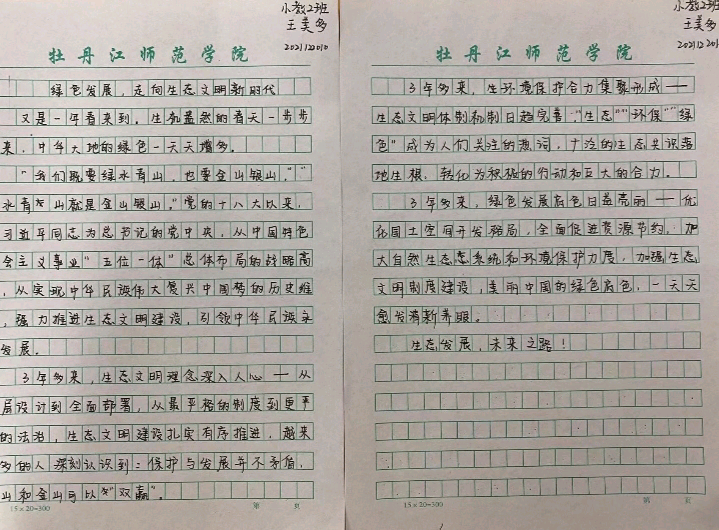 小教2班
王美多
2021122010
牡丹江师范学院
绿色发展，走向生态文明新时代
又是一年春来到。生机盎然的春天一步步
来，中华大地的绿色一天天增多。
"我们既要绿水青山，也要金山银山。""
水青山就是金山银山。"党的十八大以来，
习近平同志为总书记的党中央，从中国特色
会主义事业"五位一体"总体布局的战略高
，从实现中华民族伟大复兴中国梦的历史维
，强力推进生态文明建设，引领中华民族永
发展。
3年多来，生态文明理念深入人心——从
层设计到全面部署，从最严格的制度到更严
的法治，生态文明建设扎实有序推进，越来
多的人深刻认识到：保护与发展并不矛盾，
山和金山可以"双赢"。
15×20=300
第 页
小教2班
王美多
牡丹江师范学院
3年多来，生环境保护合力集聚形成——
生态文明体制机制日趋完善，"生态""环保""绿
色"成为人们关注的热词，广泛的生态共识落
地生根，转化为积极的行动和巨大的合力。
3年多来，绿色发展底色日益亮丽——优
化国土空间开发格局，全面促进资源节约，加
大自然生态系统和环境保护力展，加强生态
文明制度建设，美丽中国的绿色底色，一天天
愈发清新养眼。
生态发展，未来之路！
15×20=300
第 页